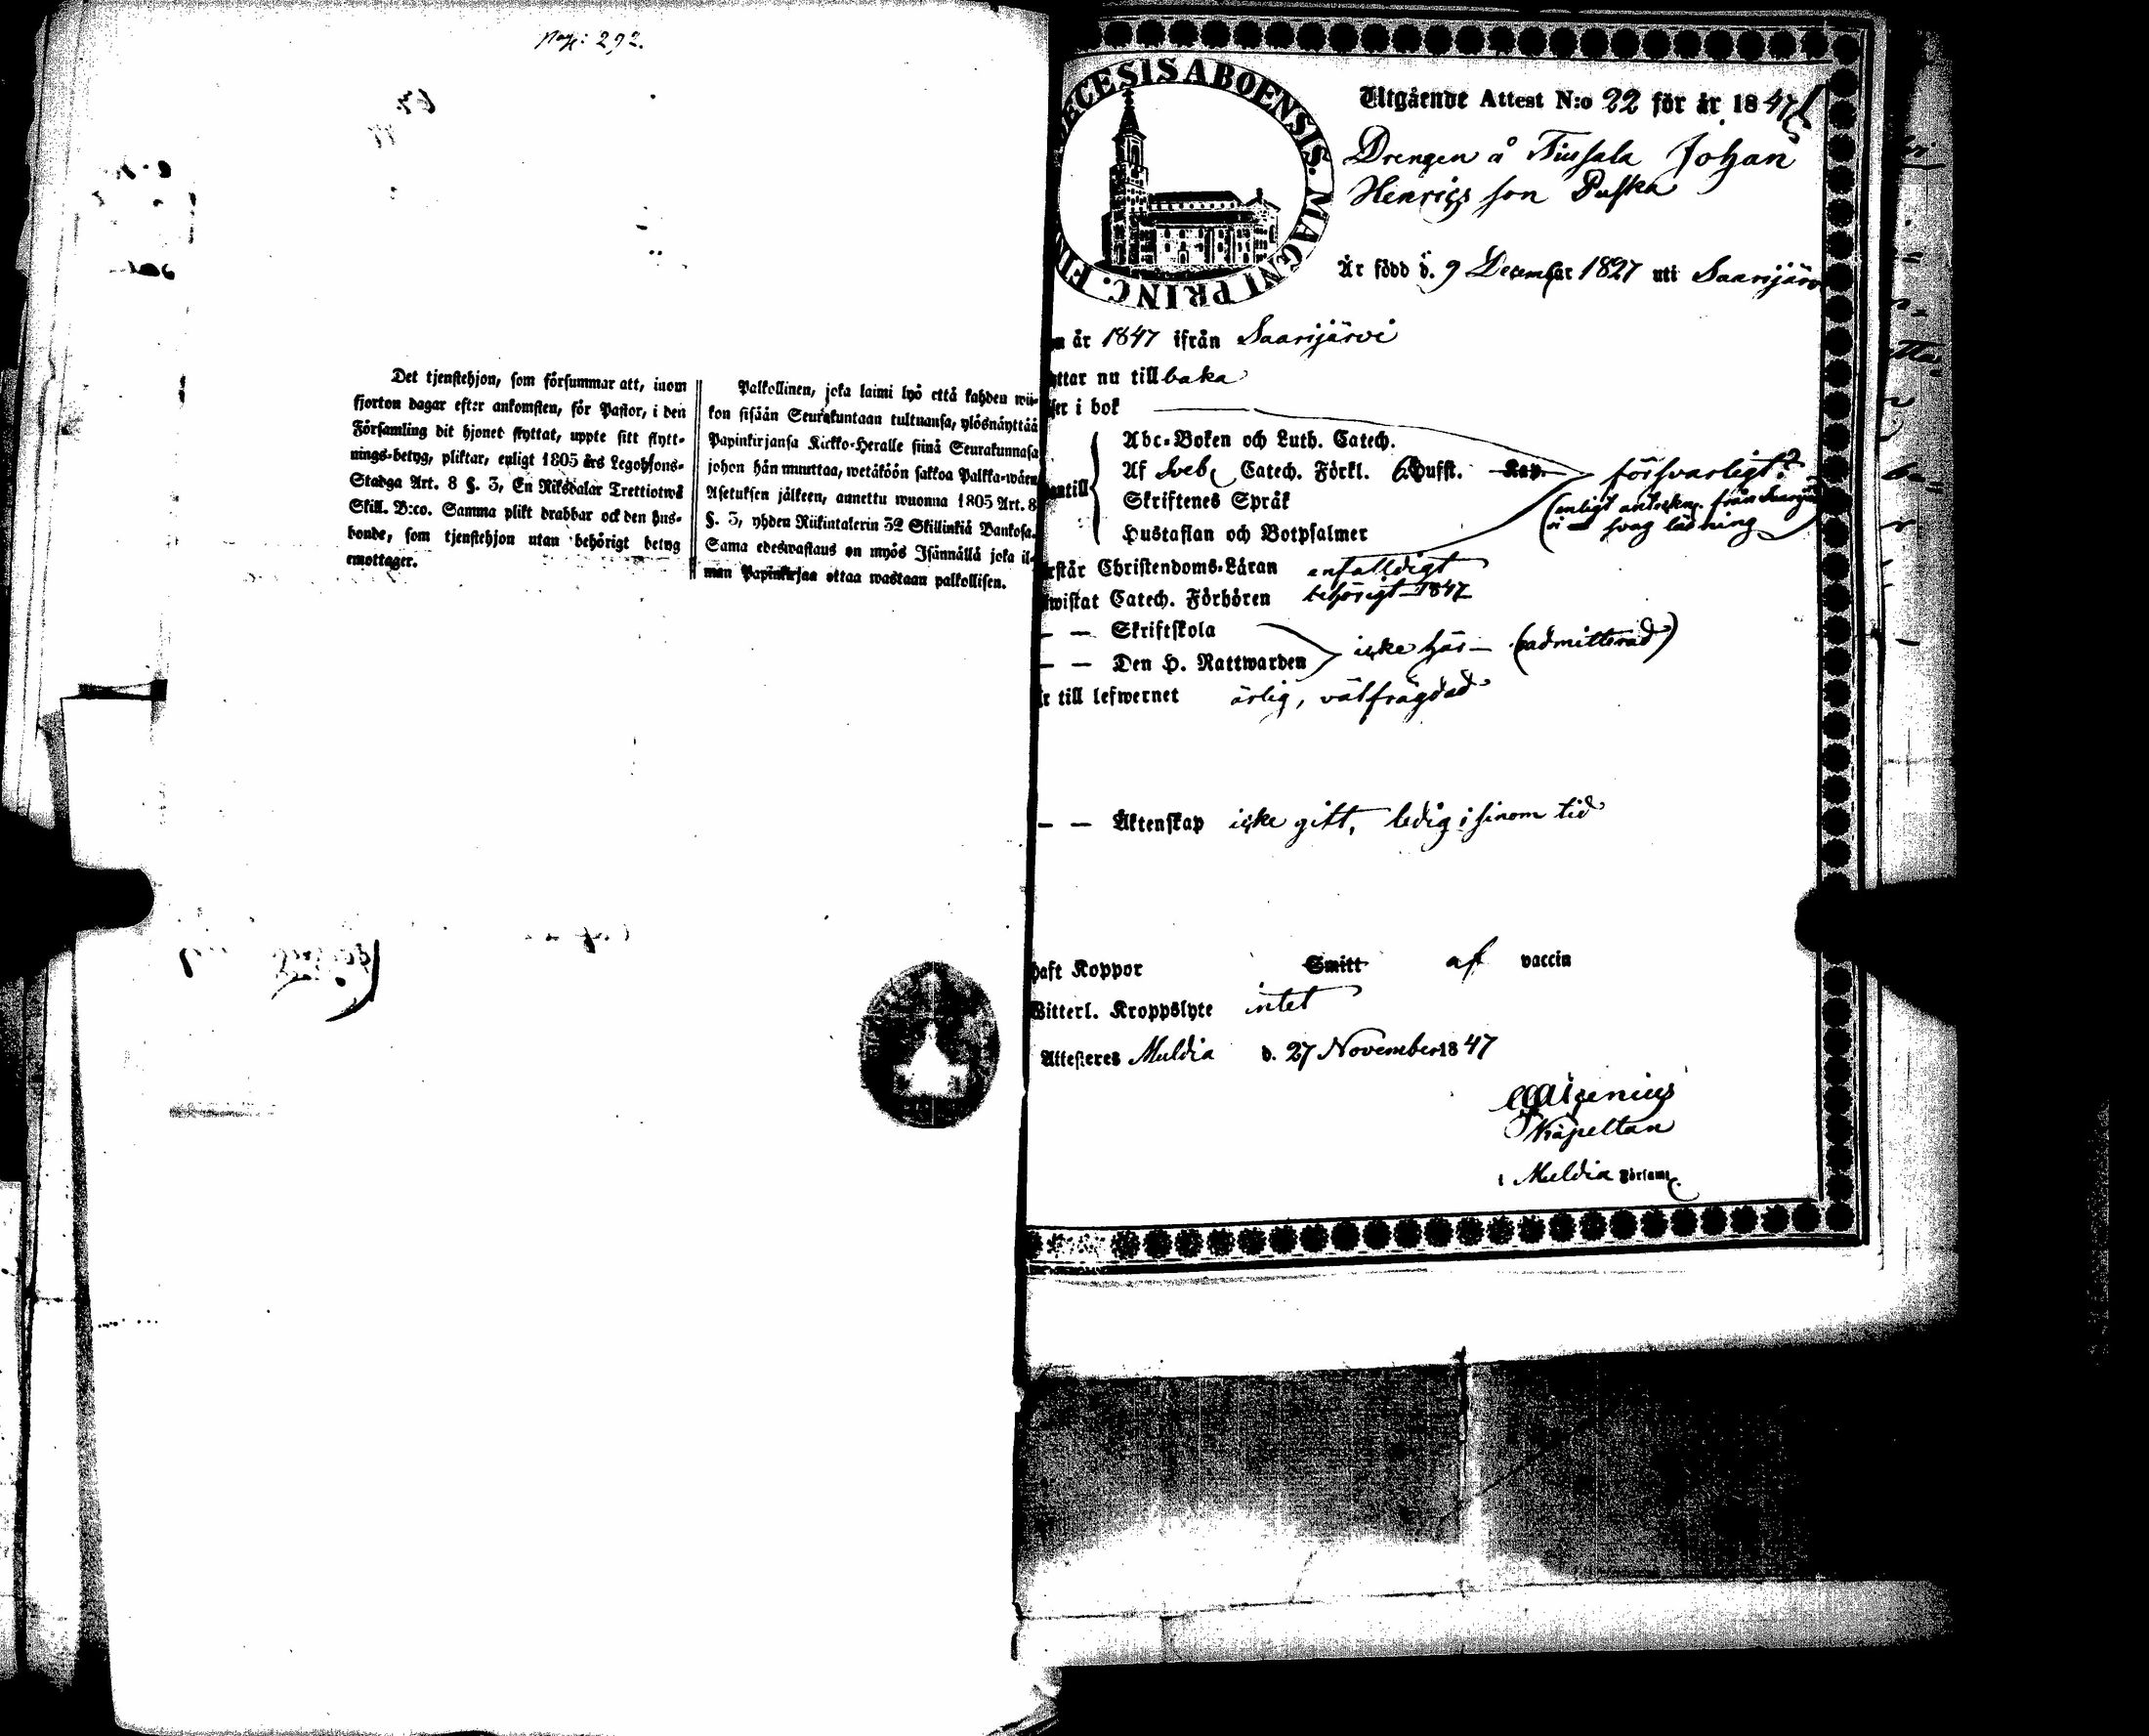 pag: 292.
Det tjenstehjon, som försummar att, inom
fjorton dagar efter ankomsten, för Pastor, i den
Församling dit hjonet flyttat, uppte sitt flytt-
nings-betyg, pliktar, enligt 1805 års Legohjons-
Stadga Art. 8 §. 3, En Riksdalar Trettiotwå
Skill. B:co. Samma plikt drabbar ock den hus-
bonde, som tjenstehjon utan behörigt betyg
emottager.
Palkollinen, joka laimi lyö että kahden wii-
kon sisään Seurakuntaan tultuansa, ylösnäyttää
Papinkirjansa Kirkko-Heralle siinä Seurakunnasa
johon hän muuttaa, wetäköön sakkoa Palkka-wäen
Asetuksen jälkeen, annettu wuonna 1805 Art. 8
§. 3, yhden Riikintalerin 32 Skillinkiä Bankosa.
Sama edeswastaus on myös Isännällä joka il-
man Papinkirjaa ottaa wastaan palkollisen.
ECESIS ABOENSIS. MAGNI PRINC. FIN
Utgående Attest N:o 22 för år 1847
Drengen å Johan
Henrics son
Är född d. 9 December 1827 uti Saarijärvi
år 1847 ifrån Saarijärvi
ttar nu tillbaka
ser i bok
Abc-Boken och Luth. Catech.
Af Sveb Catech. Förkl. 6 Hufst. Kap. försvarligt
antill
Skriftenes Språk
(enligt anteckn. från Saarijär
vi svag läsning
Hustaflan och Botpsalmer
rstår Christendoms-Läran enfalldigt
wistat Catech. Förhören behörigt 1847
— — Skriftskola
icke här — (admitterad)
— — Den H. Nattwarden
r till lefwernet ärlig, välfrägdad
— — Äktenskap icke gift, ledig i sinom tid
haft Koppor Smitt af vaccin
Witterl. Kroppslyte intet
Attesteres Muldia d. 27 November 1847
Kapellan
i Muldia Församl.